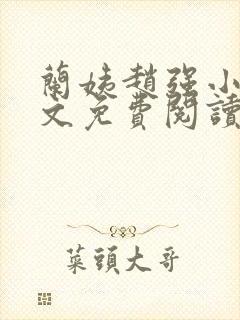 蘭姨趙强小
文免費閱讀
菜頭大哥